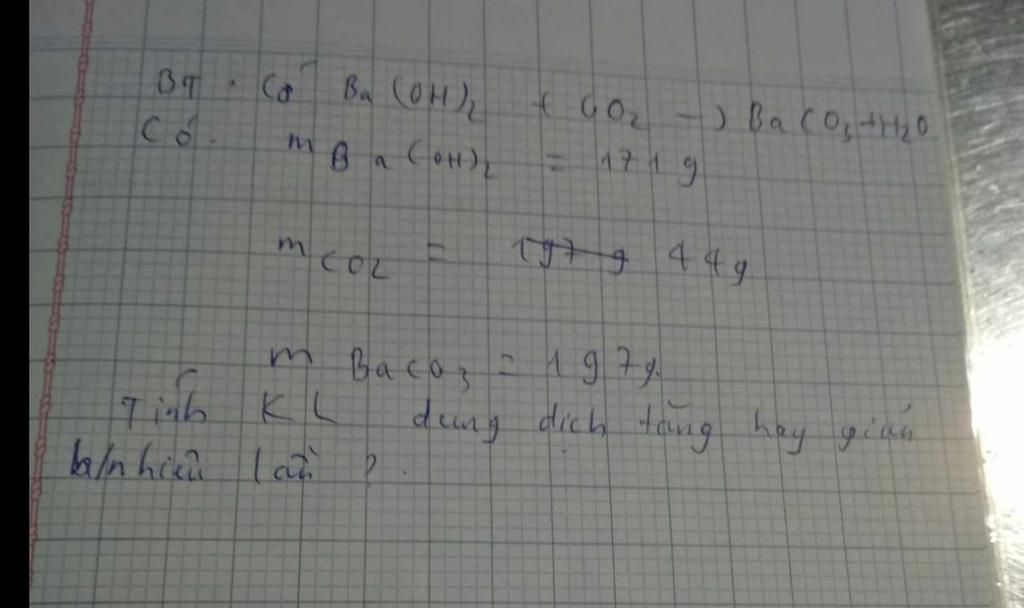 BT . Có Ba(OH)₂ + CO₂ → BaCO₃ + H₂O
Có . m Ba(OH)₂ = 171 g
m CO₂ = 197 g 44g
m BaCO₃ = 197g.
Tính KL dung dịch tăng hay giảm
b/nhiêu lần ? .